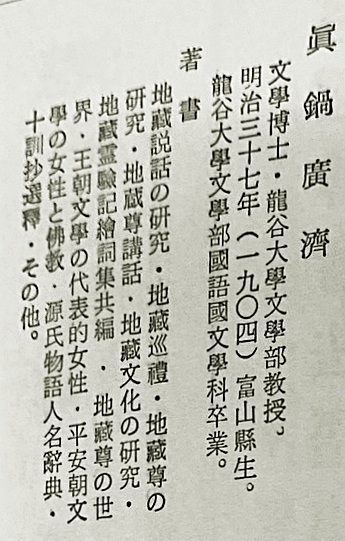 眞鍋廣濟
文學博士・龍谷大學文學部教授。
明治三十七年（一九〇四）富山縣生。
龍谷大學文學部國語國文學科卒業。
著書
地藏説話の研究・地藏巡禮・地藏尊の
研究・地蔵尊講話・地藏文化の研究・
地藏靈驗記繪詞集共編・地藏尊の世
界・王朝文學の代表的女性・平安朝文
學の女性と佛教・源氏物語人名辭典・
十訓抄選釋・その他。